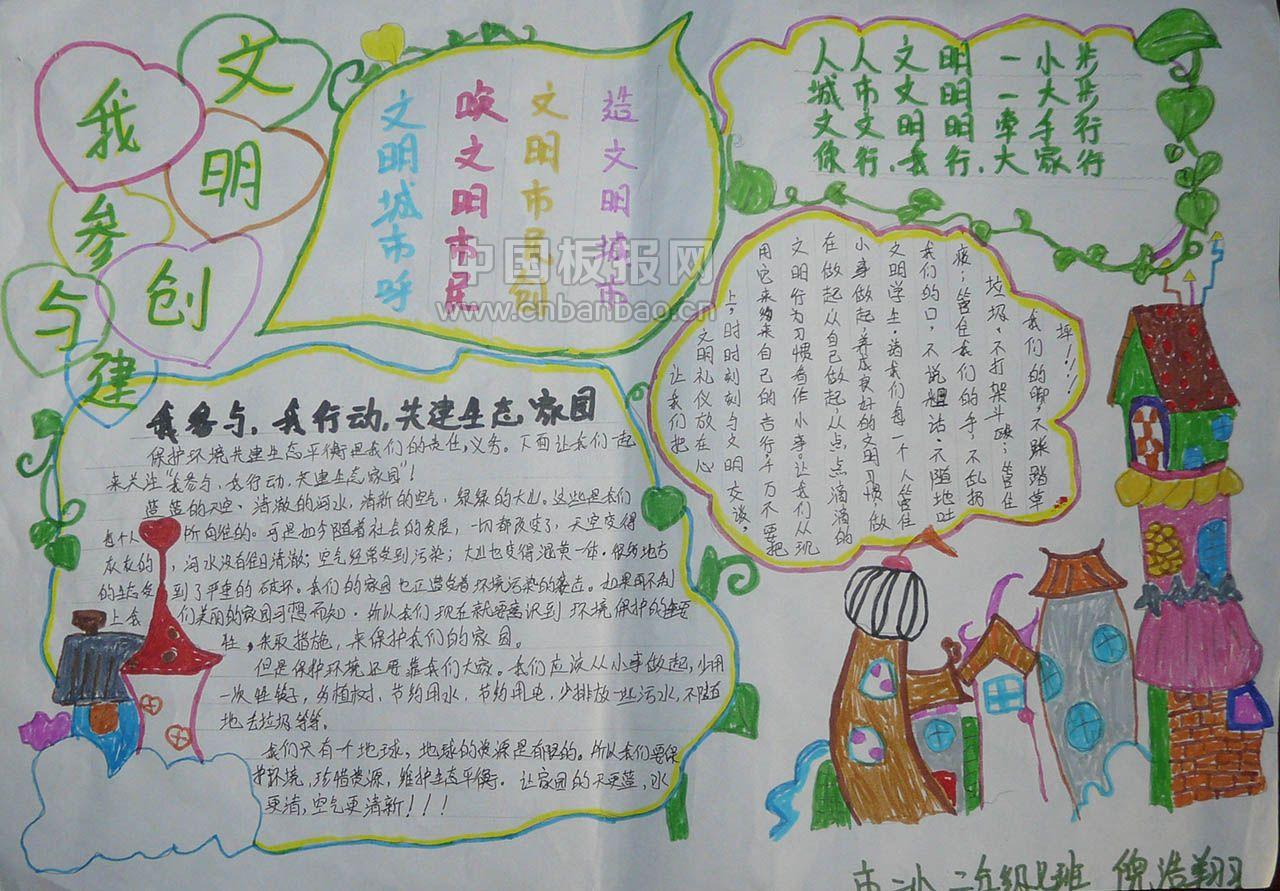 文明
我
参与
创建
文明城市呼
唤文明市民
文明市民创
造文明城市
人人文明一小步
城市文明一大步
文文明明牵手行
你行、我行、大家行
中国板报网
www.cnbanbao.cn
让我们把
文明礼仪放在心
上，时时刻刻与文明交谈，
用它来约束自己的言行千万不要把
文明行为习惯看作小事。让我们从现
在做起从自己做起，从点点滴滴的
小事做起，养成良好的文明习惯，做
文明学生，让我们每一个人管住
我们的口，不说粗话，不随地吐
痰；管住我们的手，不乱扔
垃圾、不打架斗殴；管住
我们的脚，不践踏草
坪！！！
我参与，我行动，共建生态家园
保护环境共建生态平衡是我们的责任，义务。下面让我们一起
来关注“我参与，我行动，共建生态家园”！
蓝蓝的天空、清澈的河水，清新的空气，绿绿的大山。这些是我们
每个人所向往的。可是如今随着社会的发展，一切都改变了，天空变得
灰灰的，河水没有往日清澈；空气经常受到污染；大山也变得混黄一体。很多地方
的生态受到了严重的破坏。我们的家园也正遭受着环境污染的袭击。如果再不制
上会们美丽的家园可想而知。所以我们现在就要意识到环境保护的重要
性，采取措施，来保护我们的家园。
但是保护环境还要靠我们大家。我们应该从小事做起，少用
一次性筷子，多植树，节约用水，节约用电，少排放一些污水，不随
地丢垃圾等等。
我们只有一个地球，地球的资源是有限的。所以我们要保
护环境，珍惜资源，维护生态平衡。让家园的天更蓝，水
更清，空气更清新！！！
市一小 二年级 班 倪浩翔